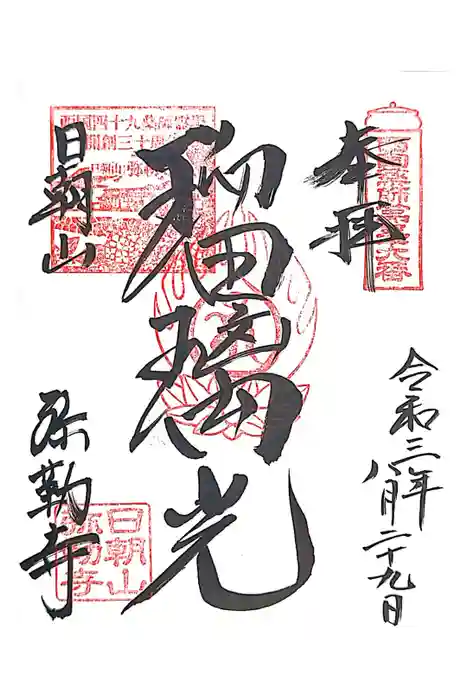 奉拝
令和三年
八月二十九日
瑠璃光
日朝山
弥勒寺
日朝山
弥勒寺